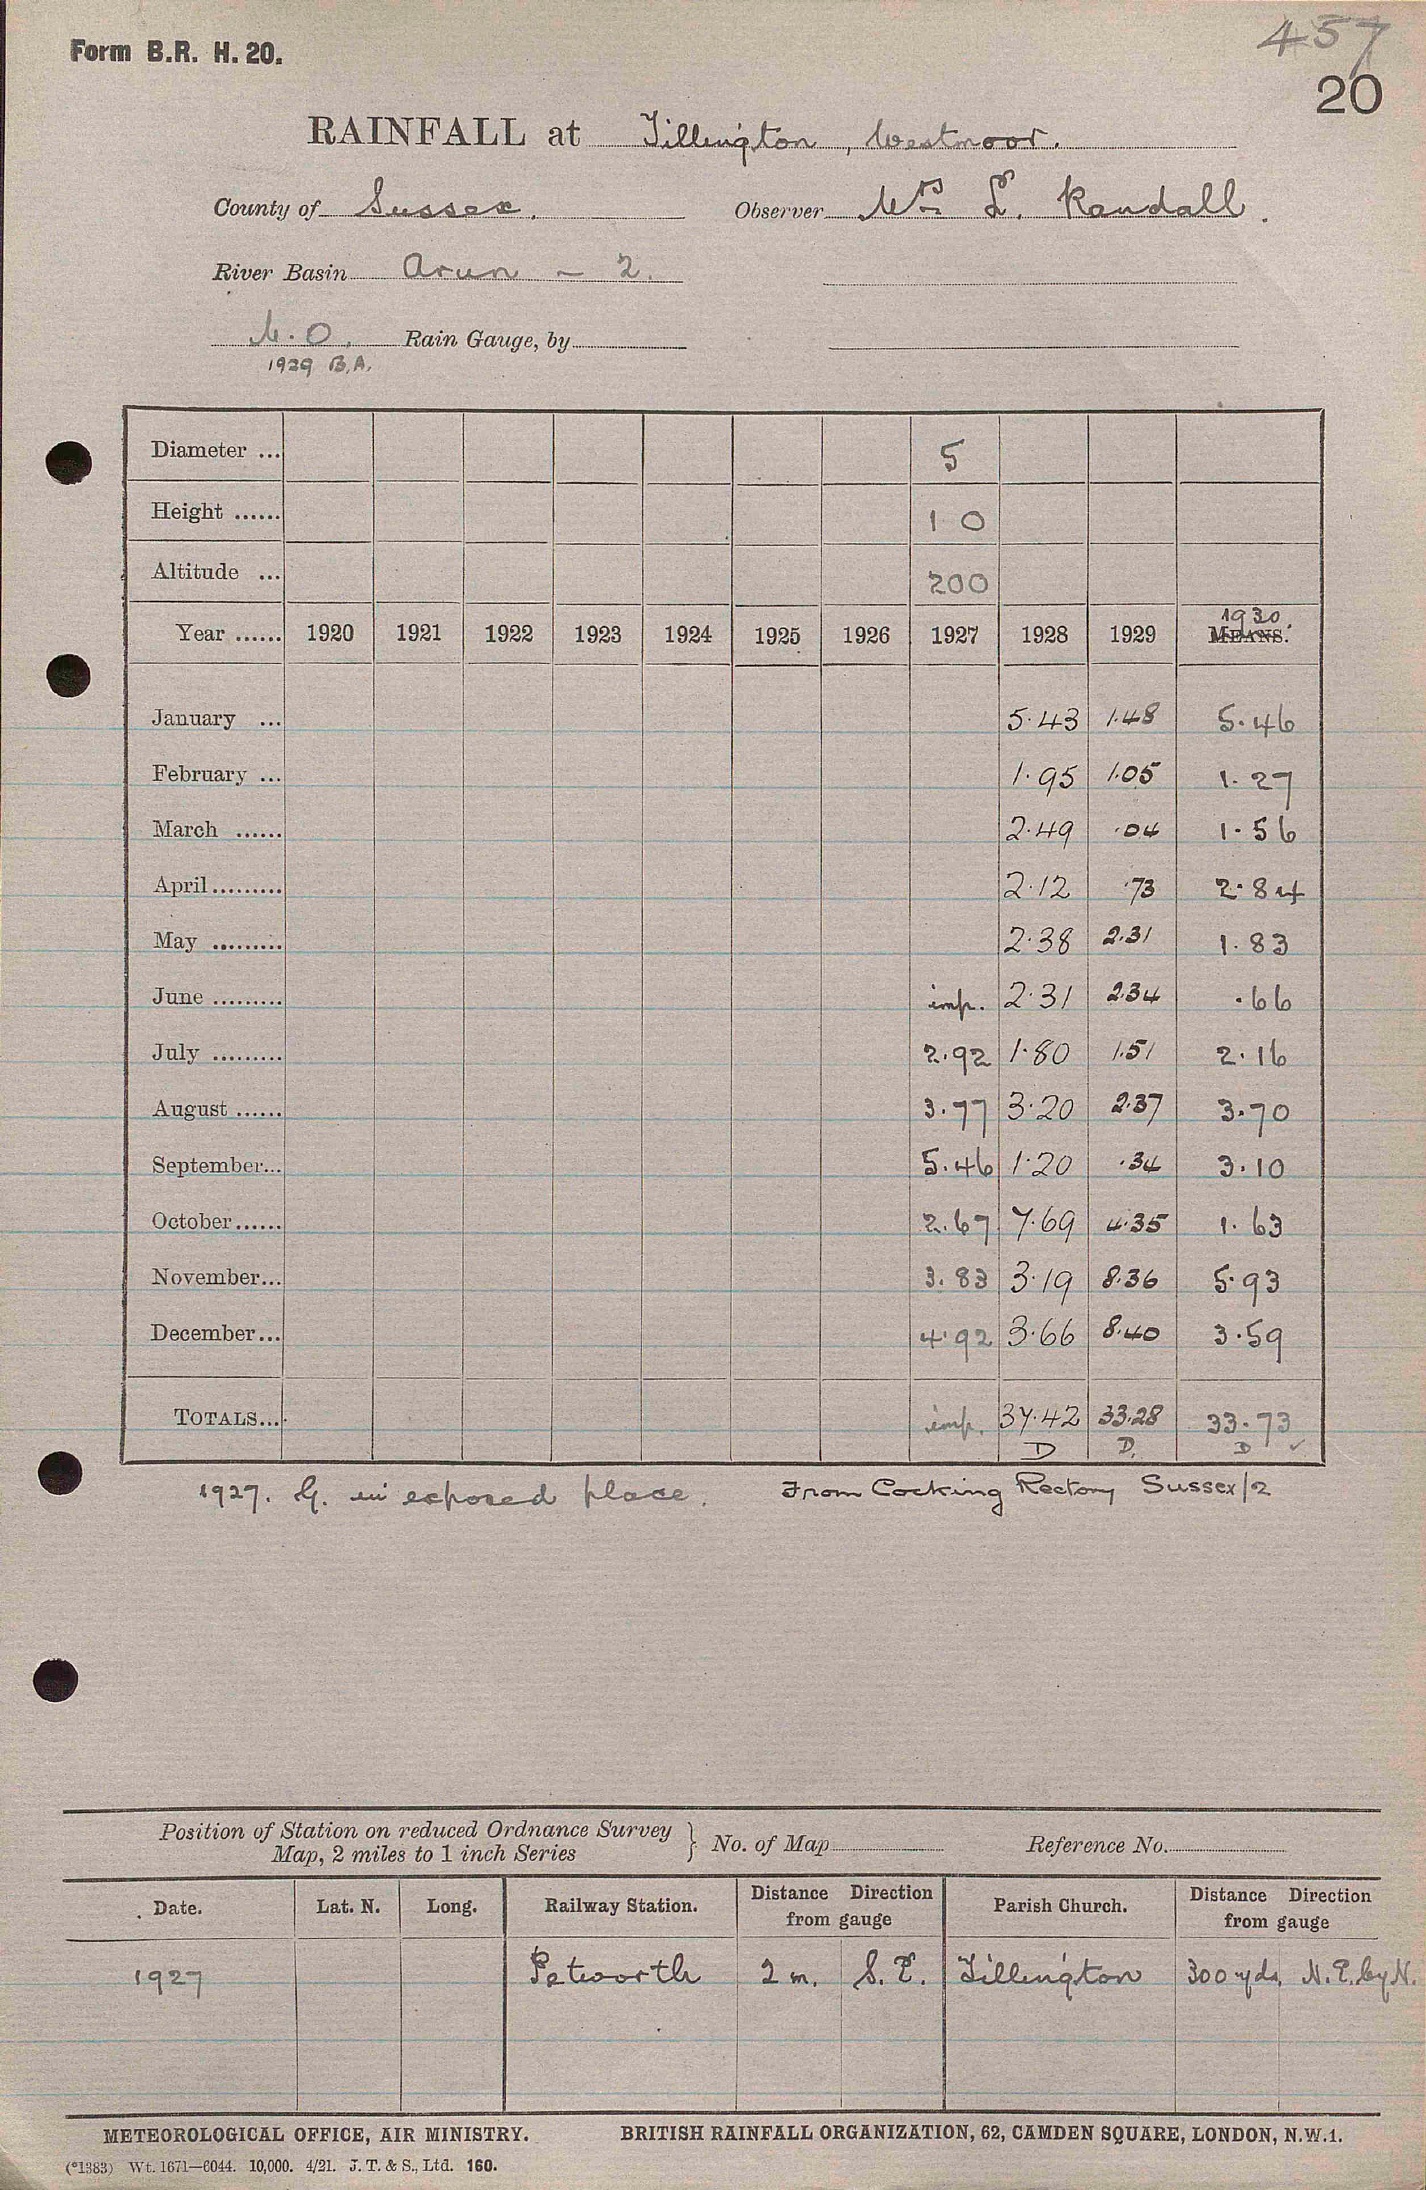 457
Form B.R. H. 20.
20
RAINFALL at Tillington, Westmoor.
County of Sussex. Observer Mrs L. Randall.
River Basin Arun - 2.
M.O. Rain Gauge, by
1929 B.A.
Diameter ... 5
Height ...... 1 0
Altitude ... 200
Year ...... 1920 1921 1922 1923 1924 1925 1926 1927 1928 1929 1930. MEANS.
January ... 5.43 1.48 5.46
February ... 1.95 1.05 1.27
March ...... 2.49 .04 1.56
April ......... 2.12 .73 2.84
May ......... 2.38 2.31 1.83
June ......... imp. 2.31 2.34 .66
July ......... 2.92 1.80 1.51 2.16
August ...... 3.77 3.20 2.37 3.70
September... 5.46 1.20 .34 3.10
October...... 2.67 7.69 4.35 1.63
November... 3.83 3.19 8.36 5.93
December... 4.92 3.66 8.40 3.59
TOTALS... imp. 37.42 33.28 33.73
D D. D ✓
1927. G. in exposed place. From Cocking Rectory Sussex/2
Position of Station on reduced Ordnance Survey
Map, 2 miles to 1 inch Series } No. of Map Reference No.
Date. Lat. N. Long. Railway Station. Distance Direction from gauge Parish Church. Distance Direction from gauge
1927 Petworth 2 m. S.E. Tillington 300 yds. N.E. by N.
METEOROLOGICAL OFFICE, AIR MINISTRY. BRITISH RAINFALL ORGANIZATION, 62, CAMDEN SQUARE, LONDON, N.W.1.
(*1383) Wt. 1671—6044. 10,000. 4/21. J. T. & S., Ltd. 160.